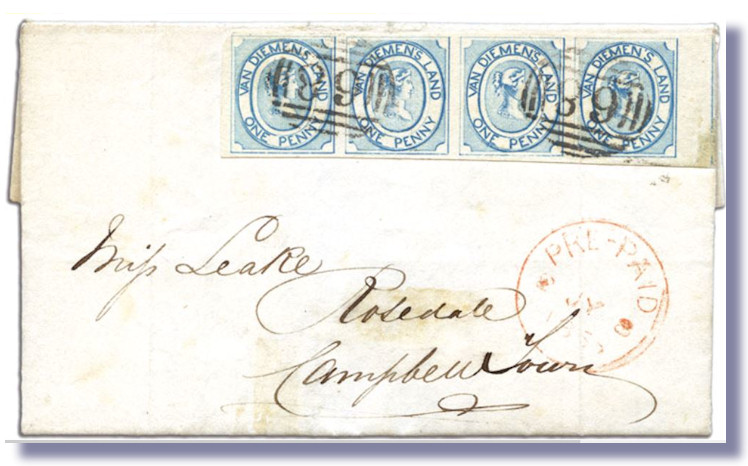 VAN DIEMEN'S LAND
ONE PENNY
VAN DIEMEN'S LAND
ONE PENNY
VAN DIEMEN'S LAND
ONE PENNY
VAN DIEMEN'S LAND
ONE PENNY
PRE-PAID
Miss Leake
Rosedale
Campbell Town